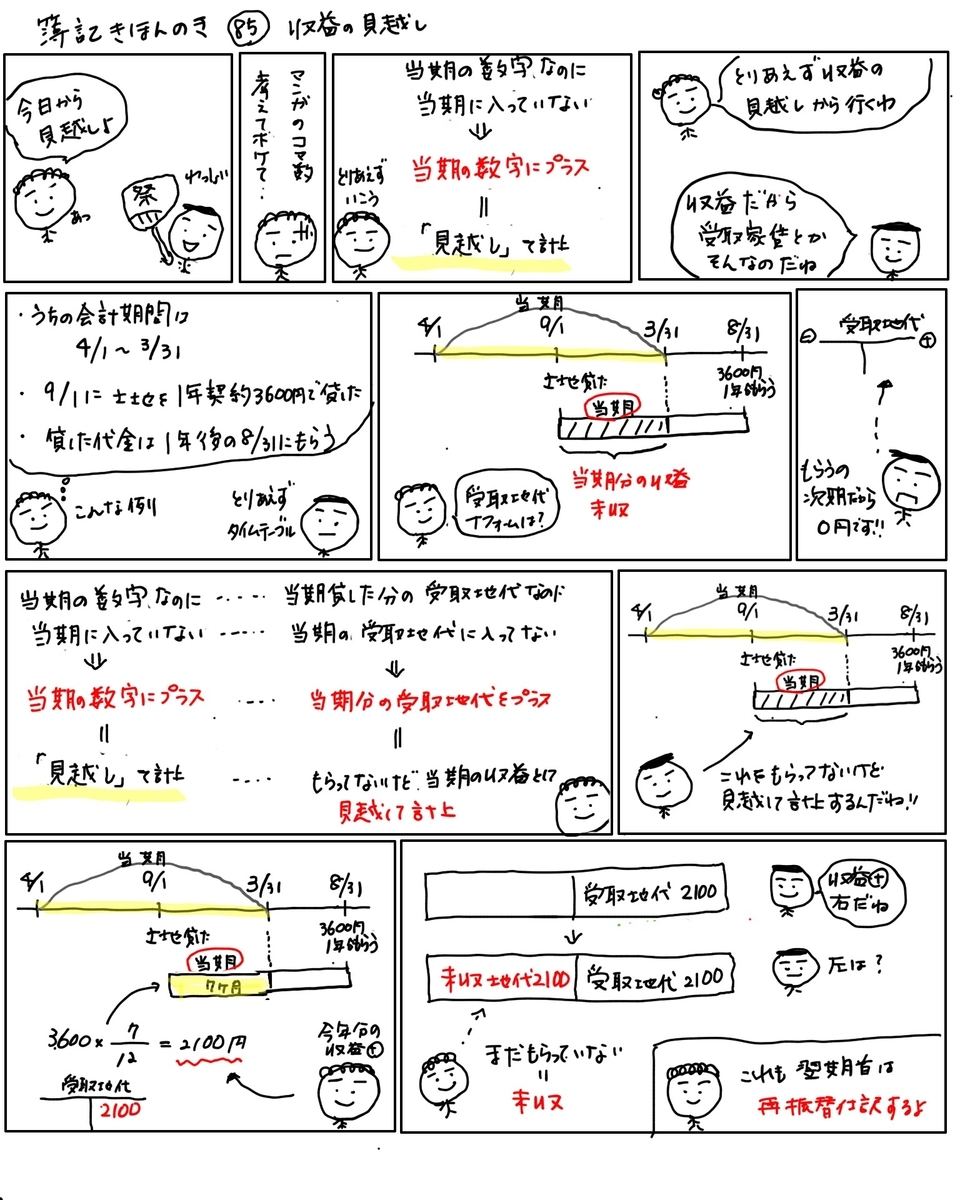 簿記きほんのき 85 収益の見越し
今日から
見越しよ
あっ
祭
わっしょい
マンガのコマ割
考えてボケて…
当期の数字なのに
当期に入っていない
⇓
当期の数字にプラス
||
「見越し」て計上
とりあえず
いこう
とりあえず収益の
見越しから行くわ
収益だから
受取家賃とか
そんなのだね
・うちの会計期間は
4/1~3/31
・9/1に土地を1年契約3600円で貸した
・貸した代金は1年後の8/31にもらう
こんな例
とりあえず
タイムテーブル
当期
4/1 9/1 3/31 8/31
土地貸た
3600円
1年もらう
当期
当期分の収益
未収
受取地代
Tフォームは?
受取地代
⊖ ⊕
もらうの
次期だから
0円です!!
当期の数字なのに ---- 当期貸した分の受取地代なのに
当期に入っていない ---- 当期の受取地代に入ってない
⇓ ⇓
当期の数字にプラス ---- 当期分の受取地代をプラス
|| ||
「見越し」て計上 ---- もらってないけど当期の収益として
見越して計上
当期
4/1 9/1 3/31 8/31
土地貸た
3600円
1年もらう
当期
これをもらってないけど
見越して計上するんだね!!
当期
4/1 9/1 3/31 8/31
土地貸た
3600円
1年もらう
当期
7ヶ月
3600 × 7/12 = 2100円
今年分の
収益⊕
受取地代
2100
受取地代 2100
収益⊕
右だね
未収地代2100 受取地代 2100
左は?
まだもらっていない
||
未収
これも翌期首は
再振替仕訳するよ